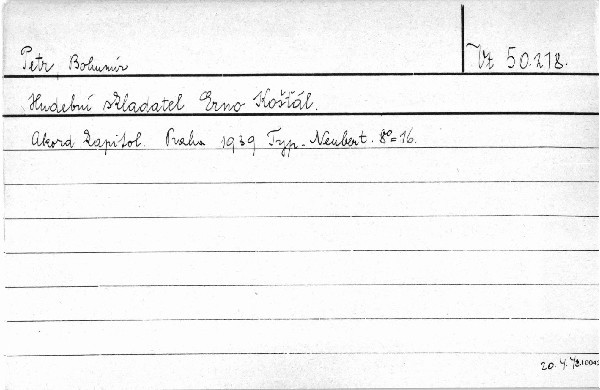 Petr Bohumír
Vz 50.218.
Hudební skladatel Erno Košťál.
Akord Kapitol. Praha 1939 Typ. Neubert. 8°=16.
20.4.78